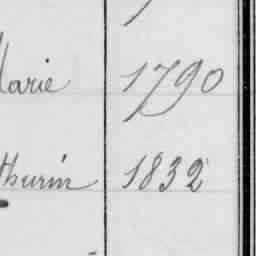 Marie 1790
thurin 1832